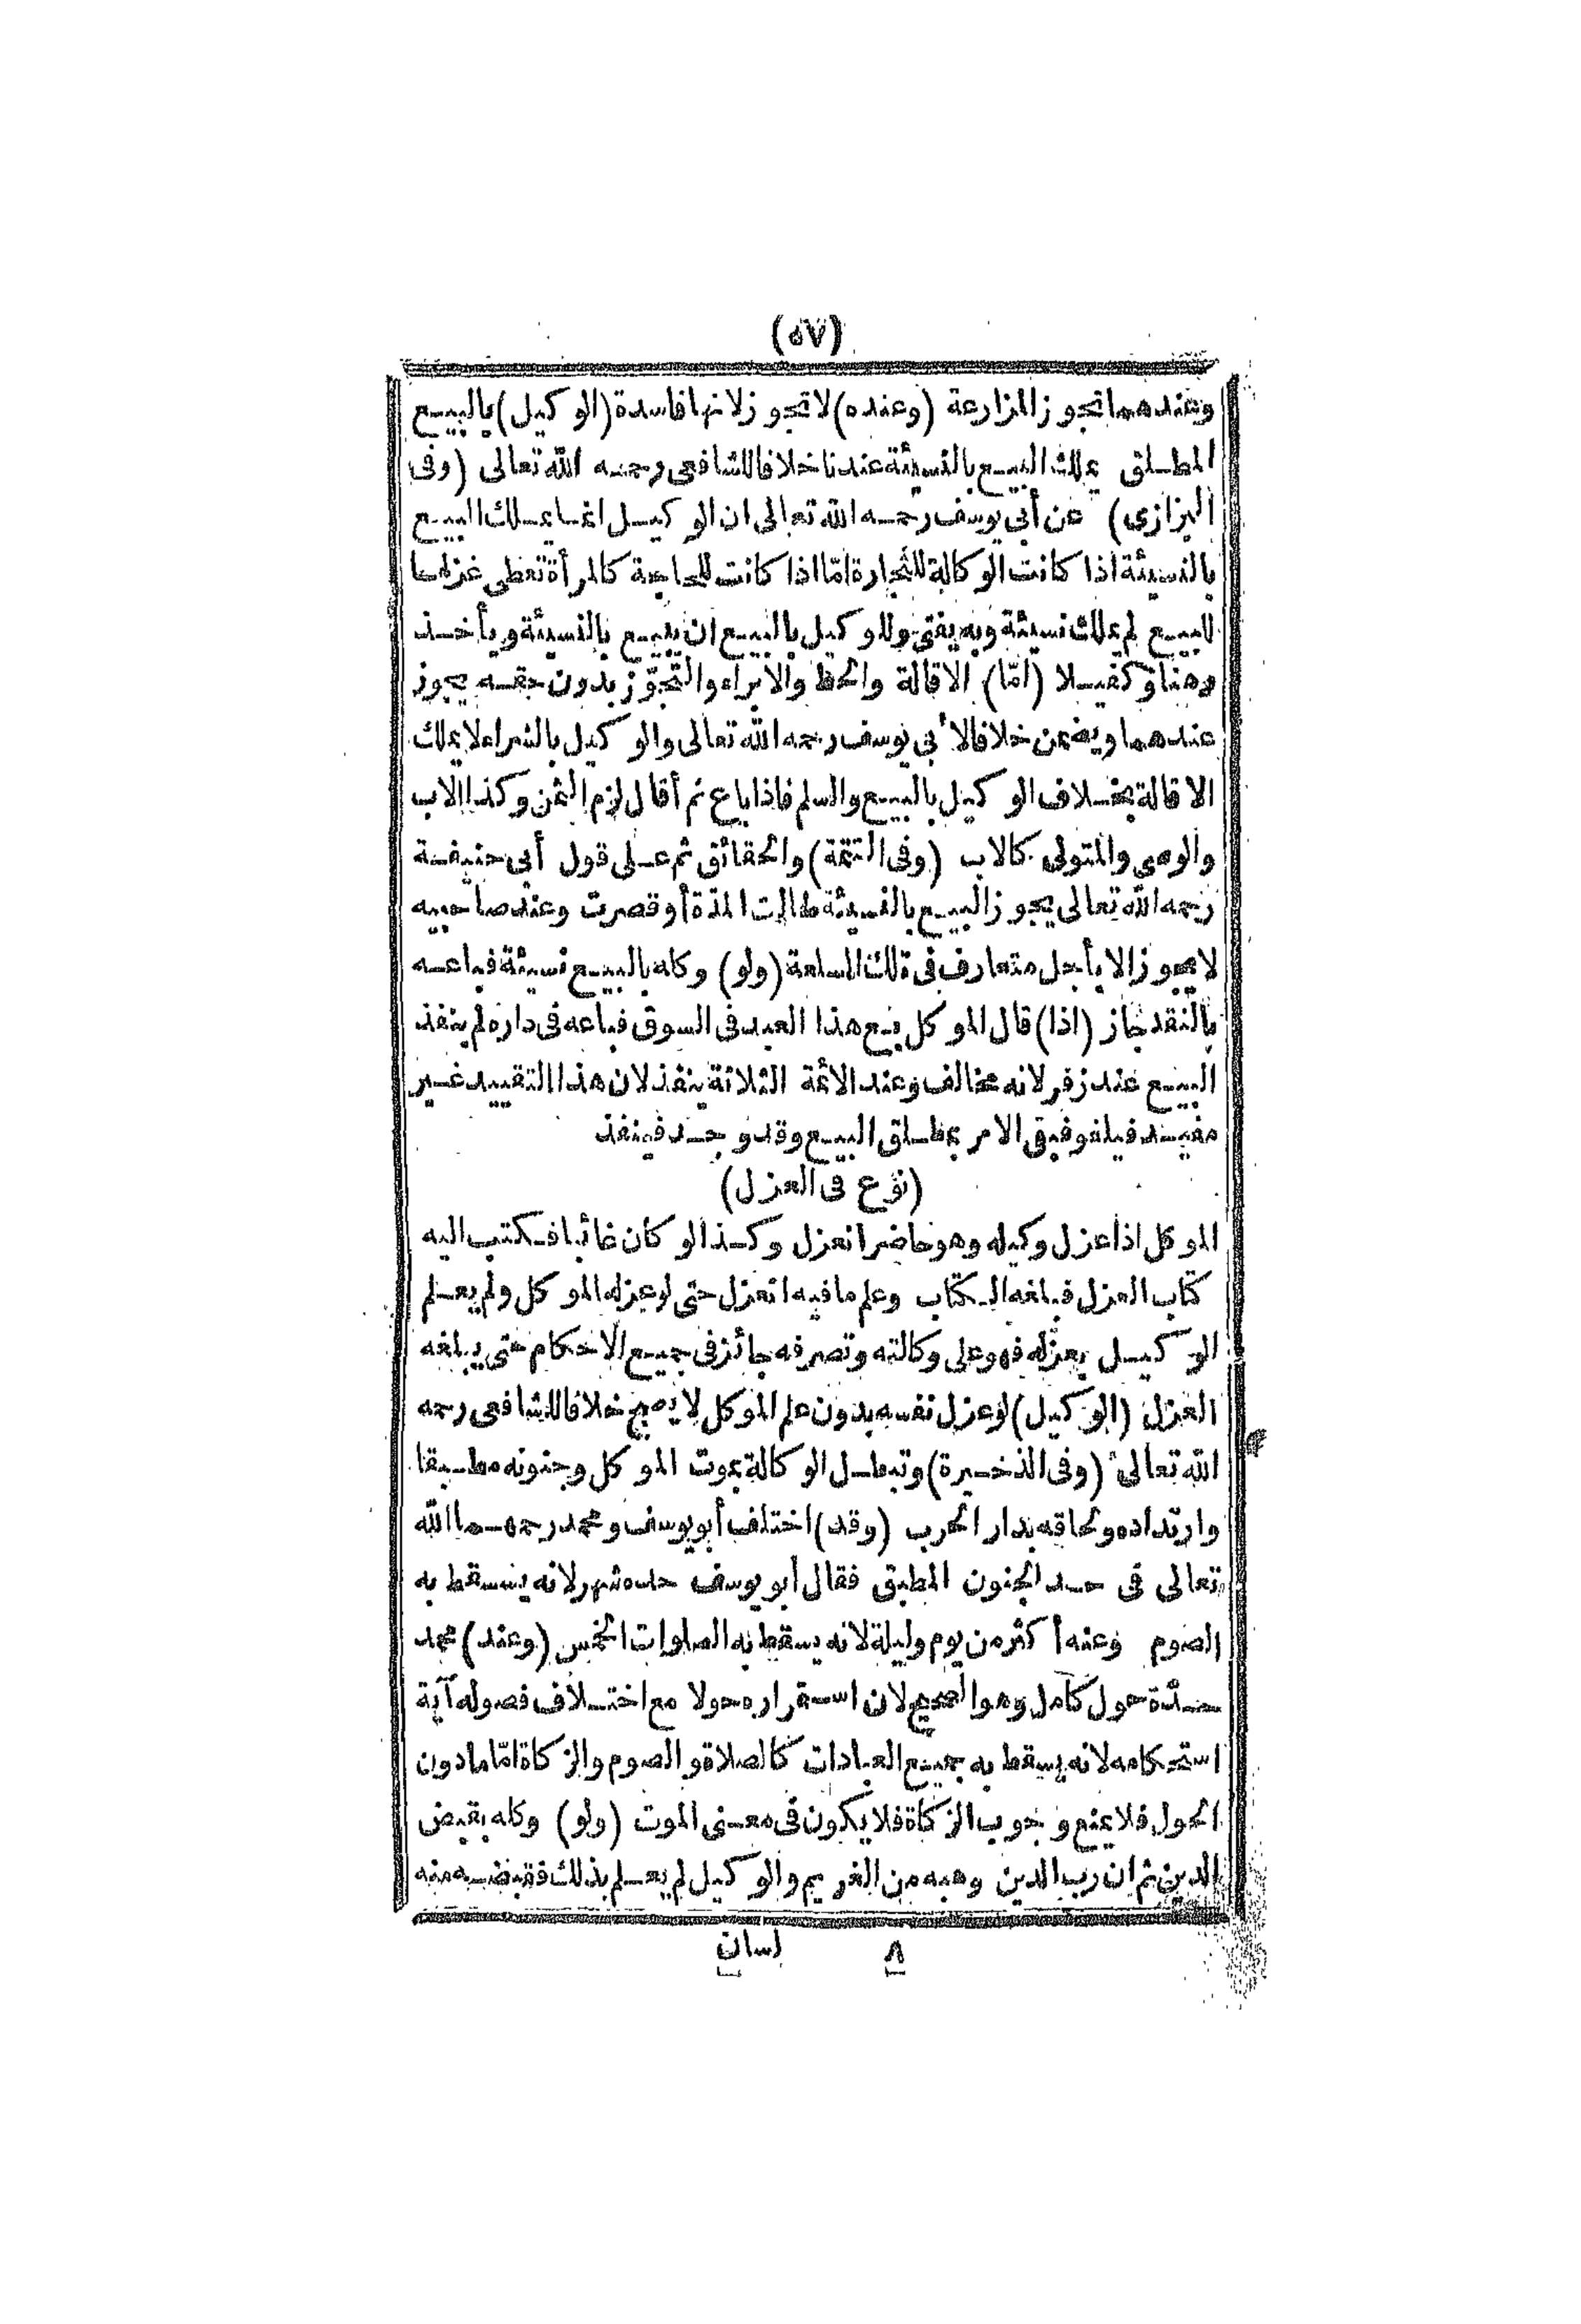 (٥٧)
وعندهما تجوز المزارعة (وعنده) لا تجوز لانها فاسدة (الوكيل) بالبيع
المطلق يملك البيع بالنسيئة عندنا خلافا للشافعى رحمه الله تعالى (وفى
البزازى) عن أبى يوسف رحمه الله تعالى ان الوكيل انما يملك البيع
بالنسيئة اذا كانت الوكالة للتجارة امّا اذا كانت للحاجة كالمرأة تعطى غزلها
للبيع لم يملك نسيئة وبه يفتى وللوكيل بالبيع ان يبيع بالنسيئة ويأخذ
رهنا وكفيلا (امّا) الاقالة والحط والابراء والتجوّز بدون حقه يجوز
عندهما ويضمن خلافا لابى يوسف رحمه الله تعالى والوكيل بالشراء لا يملك
الاقالة بخلاف الوكيل بالبيع والسلم فاذا باع ثم أقال لزم الثمن وكذا الاب
والوصى والمتولى كالاب (وفى التتمة) والحقائق ثم على قول أبى حنيفة
رحمه الله تعالى يجوز البيع بالنسيئة طالت المدّة أو قصرت وعند صاحبيه
لا يجوز الا بأجل متعارف فى تلك السلعة (ولو) وكله بالبيع نسيئة فباعه
بالنقد جاز (اذا) قال الموكل بع هذا العبد فى السوق فباعه فى داره لم ينفذ
البيع عند زفر لانه مخالف وعند الائمة الثلاثة ينفذ لان هذا التقييد غير
مفيد فيلغو فبقى الامر بمطلق البيع وقد وجد فينفذ
(نوع فى العزل)
الموكل اذا عزل وكيله وهو حاضر انعزل وكذا لو كان غائبا فكتب اليه
كتاب العزل فبلغه الكتاب وعلم ما فيه انعزل حتى لو عزله الموكل ولم يعلم
الوكيل بعزله فهو على وكالته وتصرفه جائز فى جميع الاحكام حتى يبلغه
العزل (الوكيل) لو عزل نفسه بدون علم الموكل لا يصح خلافا للشافعى رحمه
الله تعالى (وفى الذخيرة) وتبطل الوكالة بموت الموكل وجنونه مطبقا
وارتداده ولحاقه بدار الحرب (وقد) اختلف أبو يوسف ومحمد رحمهما الله
تعالى فى حد الجنون المطبق فقال أبو يوسف حده شهر لانه يسقط به
الصوم وعنه أكثر من يوم وليلة لانه يسقط به الصلوات الخمس (وعند) محمد
حدّه حول كامل وهو الصحيح لان استقراره حولا مع اختلاف فصوله آية
استحكامه لانه يسقط به جميع العبادات كالصلاة والصوم والزكاة امّا ما دون
الحول فلا يمنع وجوب الزكاة فلا يكون فى معنى الموت (ولو) وكله بقبض
الدين ثم ان رب الدين وهبه من الغريم والوكيل لم يعلم بذلك فقبضه منه
٨ لسان